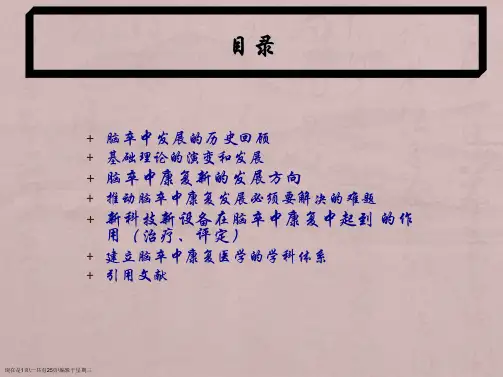 目录
+ 脑卒中发展的历史回顾
+ 基础理论的演变和发展
+ 脑卒中康复新的发展方向
+ 推动脑卒中康复发展必须要解决的难题
+ 新科技新设备在脑卒中康复中起到 的作
用（治疗、评定）
+ 建立脑卒中康复医学的学科体系
+ 引用文献